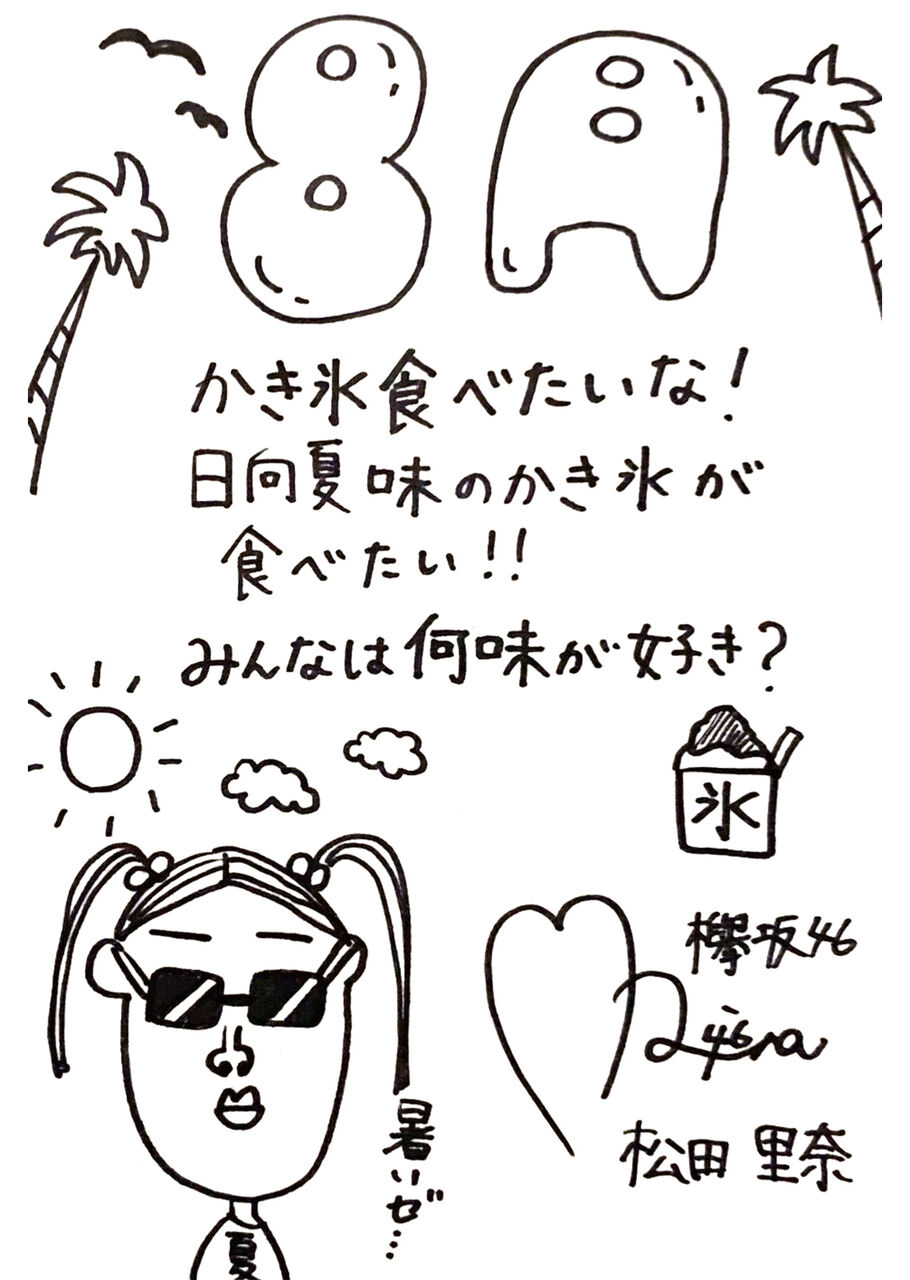 8月
かき氷食べたいな！
日向夏味のかき氷が
食べたい！！
みんなは何味が好き？
氷
欅坂46
松田里奈
暑いゼ…
夏